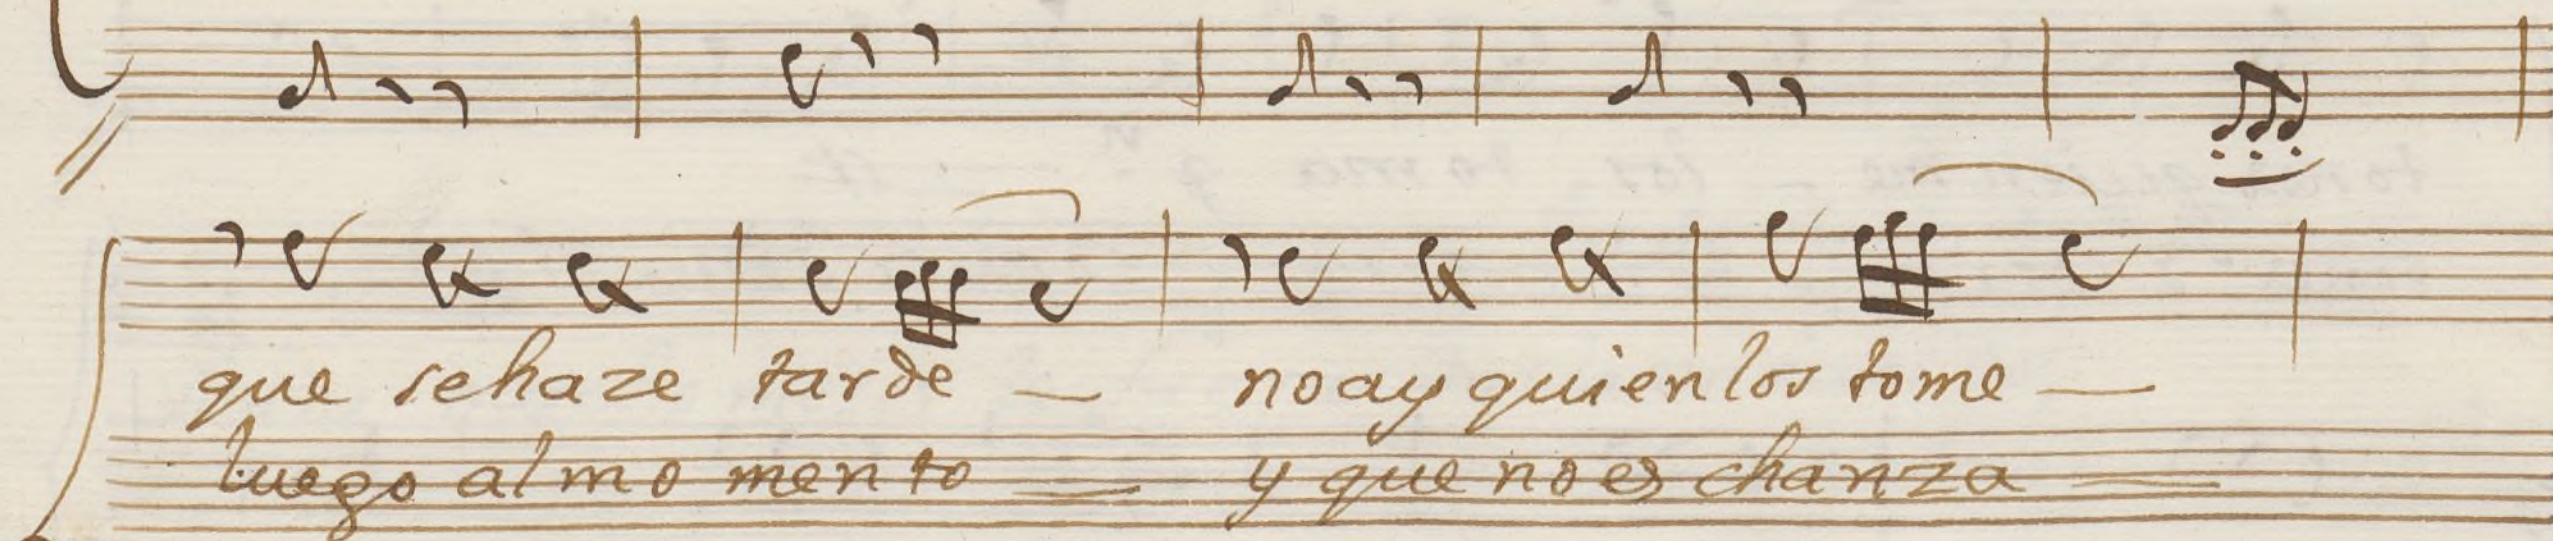 que sehaze tarde — noay quien los tome —
luego al momento — y que no es chanza —